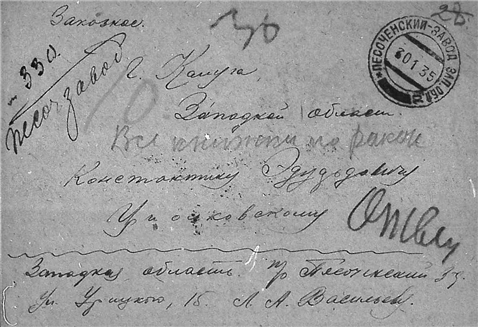 Заказное.
28.
№ 330.
Песоч. завод
ПЕСОЧЕНСКИЙ-ЗАВОД ЗАП.ОБЛ.
30 1 35
г. Калуга,
Западной области.
Все книжки по ракет
Константину Эдуардовичу
Циолковскому
Ответ
Западная область п/о Песоченский з-д
ул. Урицкого, 15 Л. А. Васильеву.